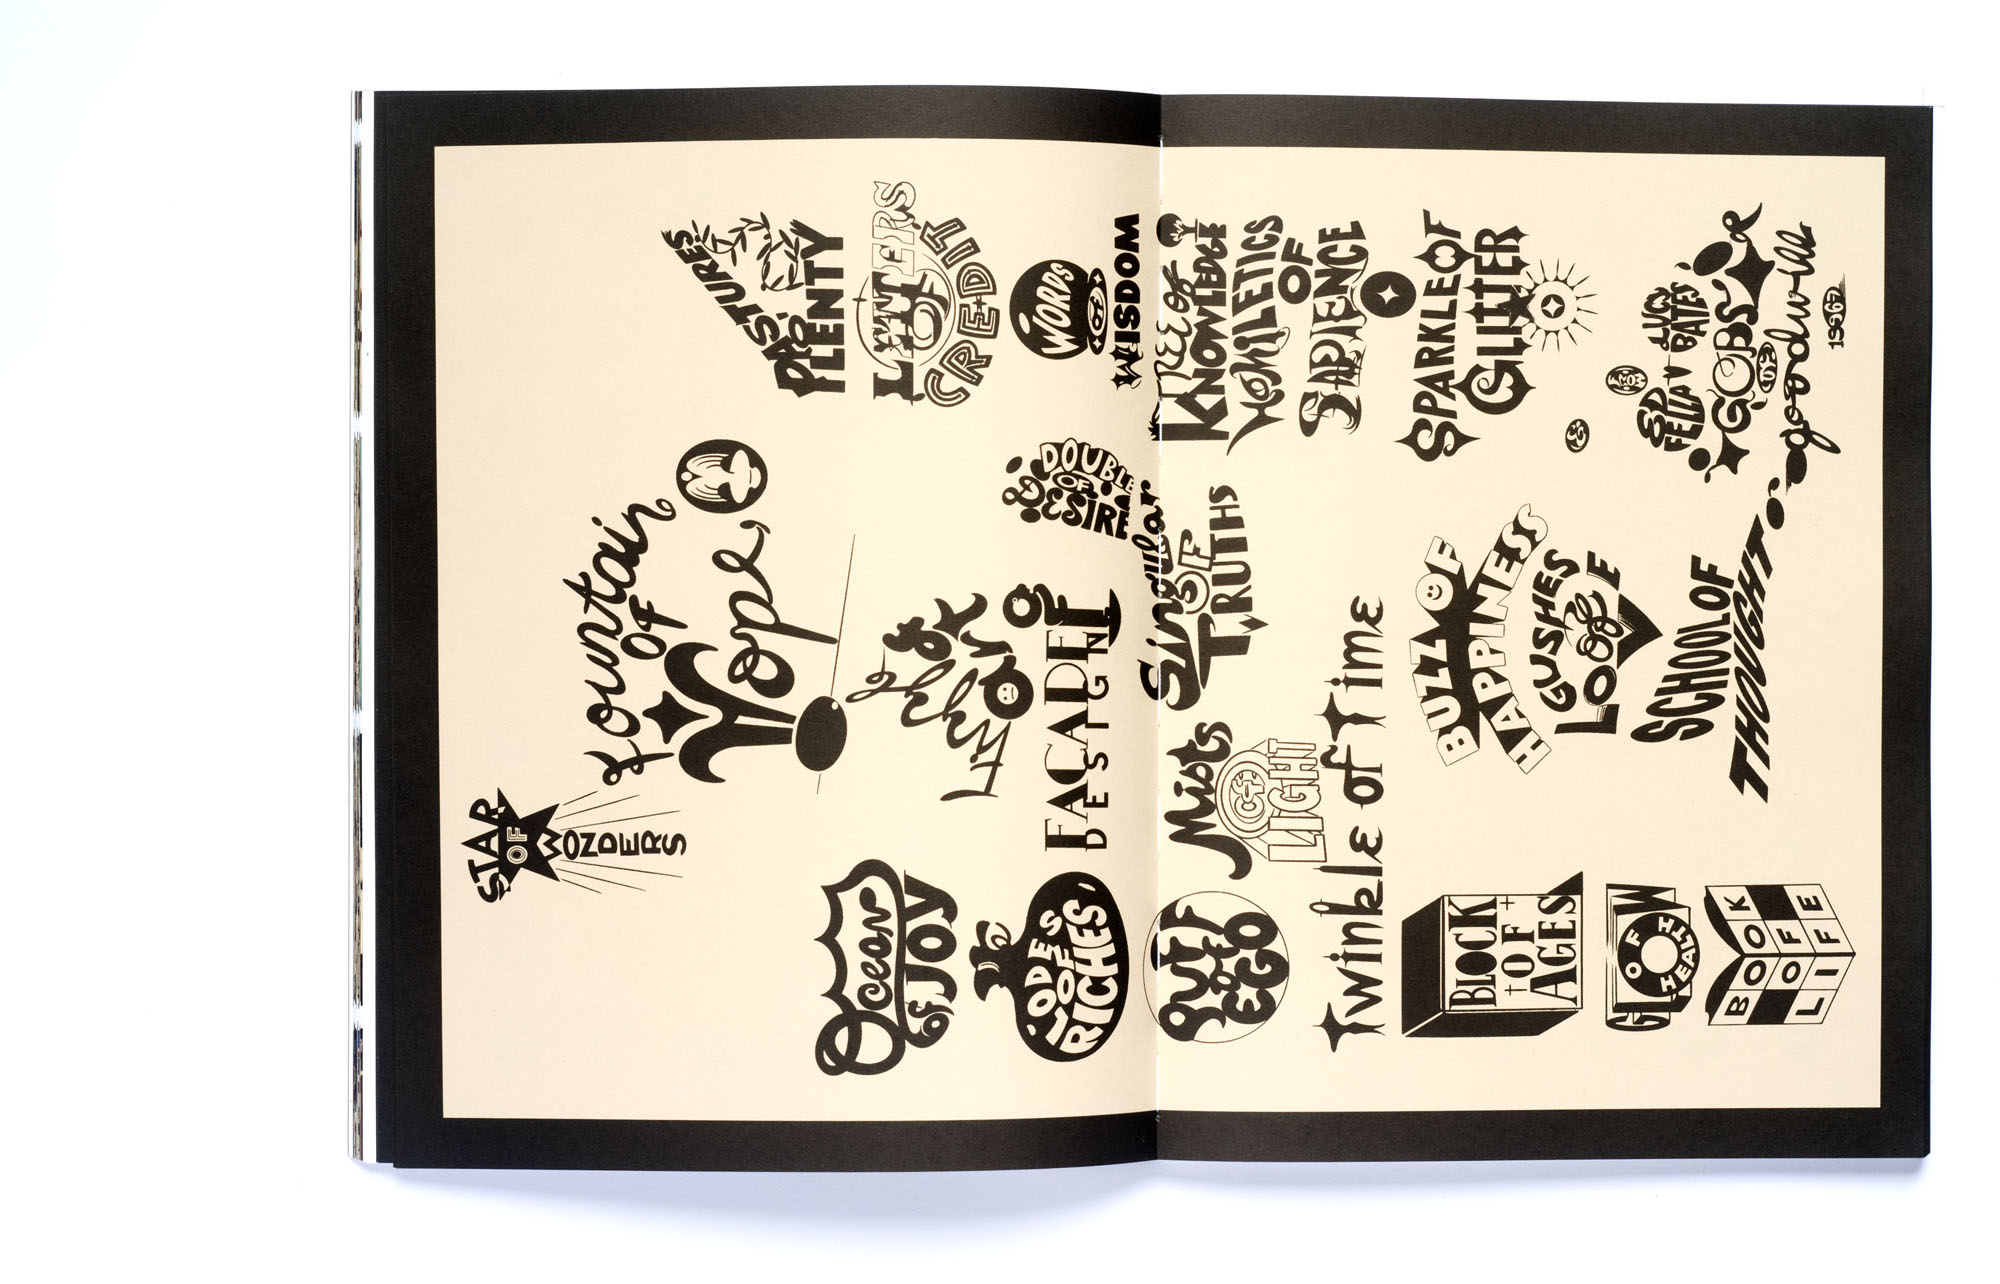 STAR
OF
WONDERS
Fountain
OF
Hope
PASTURES
O'
PLENTY
LETTERS
OF
CREDIT
Ocean
OF JOY
FACADE
DESIGN
WORDS
of
WISDOM
LODES
OF
RICHES
OF
DESIRE
TREE of
KNOWLEDGE
PUFF
OF
EGO
Mists
OF
LIGHT
Singular
OF
TRUTHS
HOMILETICS
OF
SAPIENCE
Twinkle of Time
SPARKLE OF
GLITTER
BLOCK
OF
AGES
BUZZ OF
HAPPINESS
GUSHES
OF
LOVE
GLOW
OF HEALTH
BOOK
OF
LIFE
SCHOOL OF
THOUGHT
ED LUCY
FELLA V BATES
GOBS
OF
goodwill